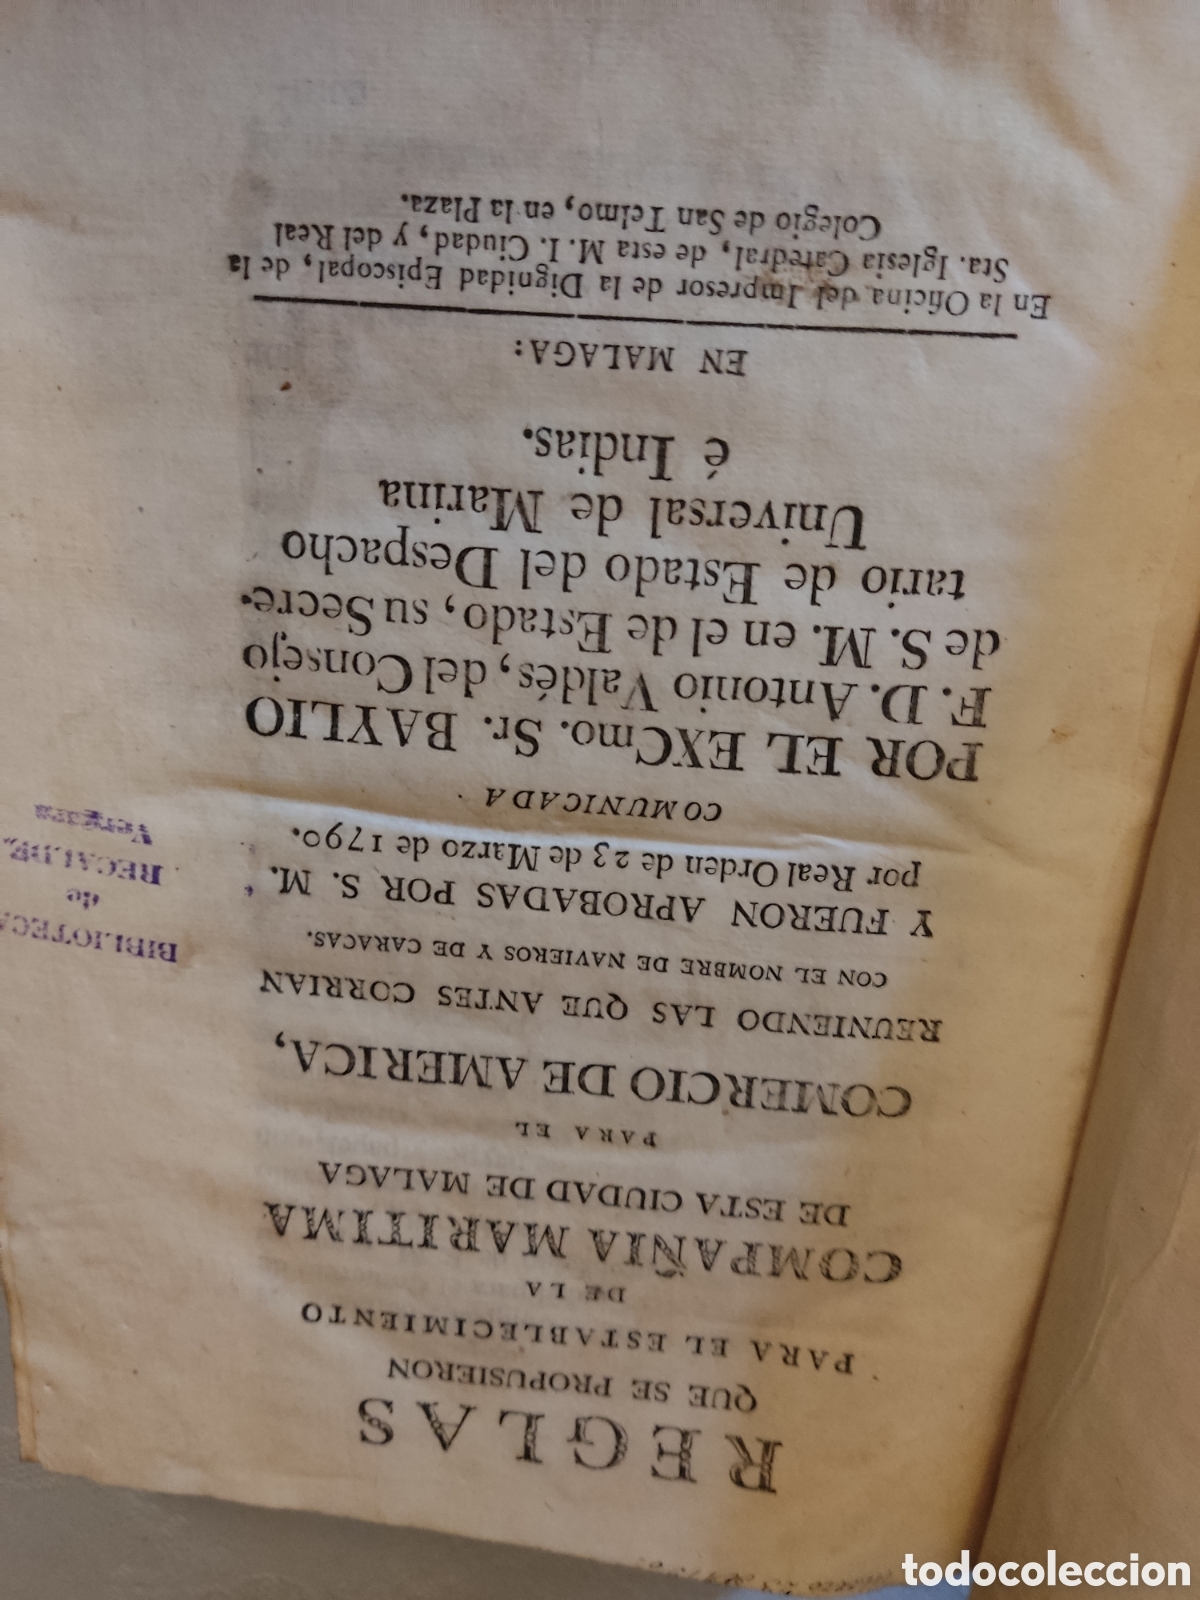 REGLAS
QUE SE PROPUSIERON
PARA EL ESTABLECIMIENTO
DE LA
COMPAÑIA MARITIMA
DE ESTA CIUDAD DE MALAGA
PARA EL
COMERCIO DE AMERICA,
REUNIENDO LAS QUE ANTES CORRIAN
CON EL NOMBRE DE NAVIEROS Y DE CARACAS.
Y FUERON APROBADAS POR S. M.
por Real Orden de 23 de Marzo de 1790.
COMUNICADA
POR EL EXCmo. Sr. BAYLIO
F. D. Antonio Valdés, del Consejo
de S. M. en el de Estado, su Secre-
tario de Estado del Despacho
Universal de Marina
é Indias.
EN MALAGA:
En la Oficina del Impresor de la Dignidad Episcopal, de la
Sta. Iglesia Catedral, de esta M. I. Ciudad, y del Real
Colegio de San Telmo, en la Plaza.
BIBLIOTECA
de
RECALDE
Vergara
todocoleccion